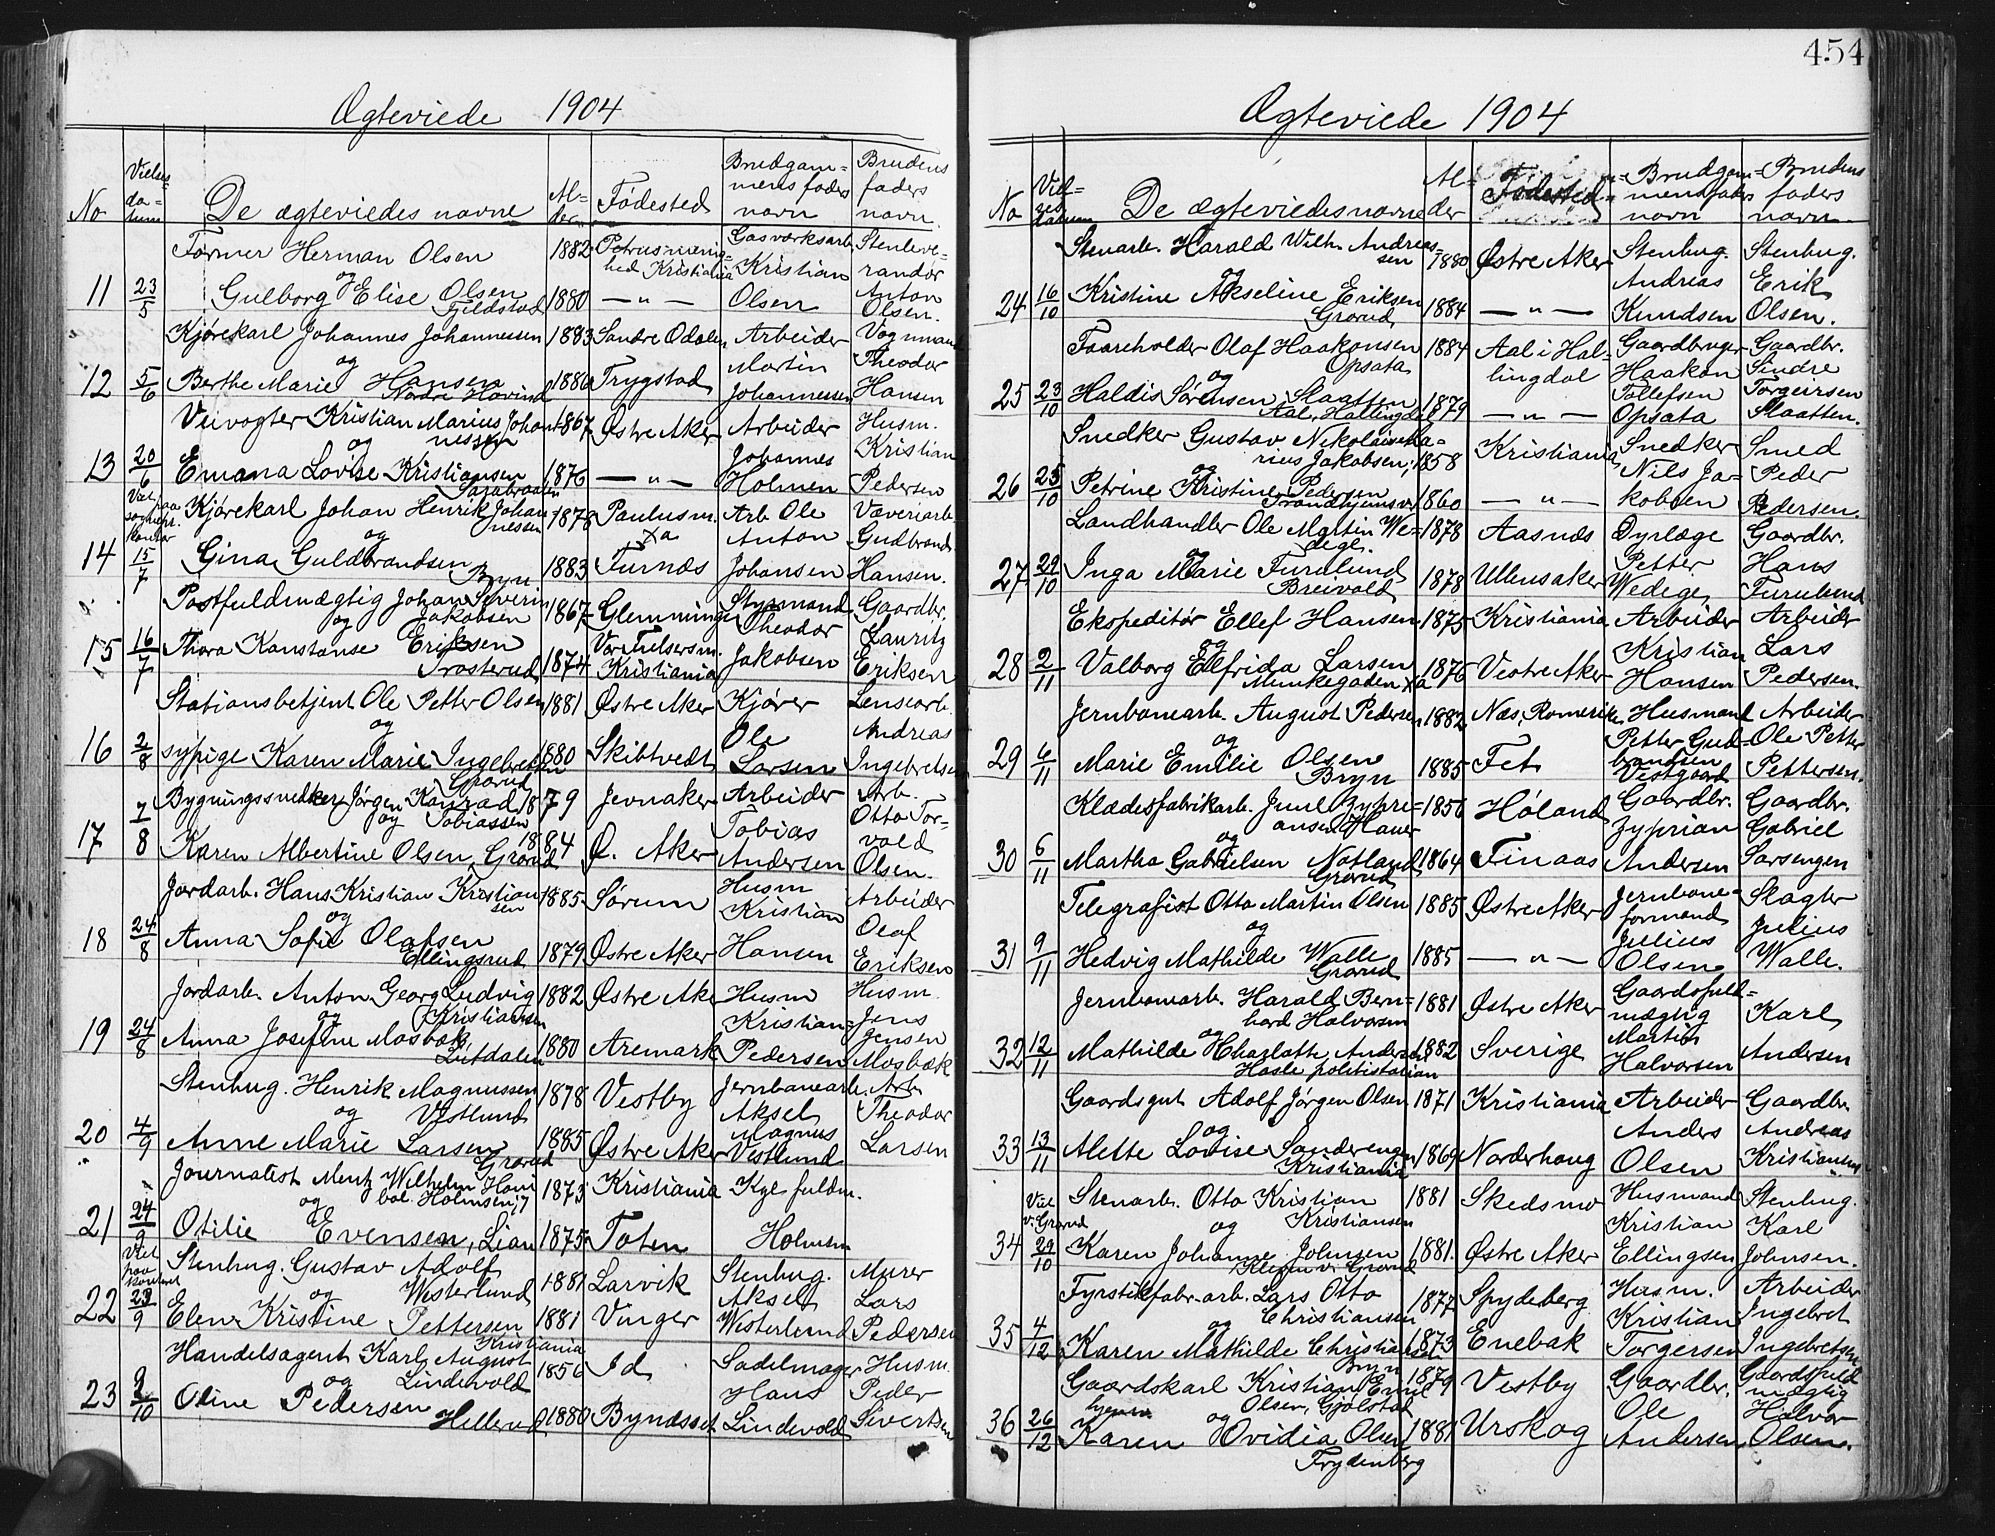 454
Ægteviede 1904
No
Vielses
da-
tum
De ægteviedes navne
Al-
der
Fødested
Brudgom-
mens faders
navn
Brudens
faders
navn.
Former Herman Olsen 1882 Petrus menig- Gasværksarb. Stenleve-
og hed Kristiania Kristian randør
11 23/5 Gulborg Elise Olsen 1880 — " — Olsen Anton
Fjeldstad Olsen.
Kjørekarl Johannes Johannessen 1883 Søndre Odalen Arbeider Vognmand
og Martin Theodor
12 5/6 Berthe Marie Hansen 1886 Trygstad Johannessen Hansen
Nordre Hovind
Veivogter Kristian Marius Johan- 1867 Østre Aker Arbeider Husm.
nessen
og Johannes Kristian
13 20/6 Emana Lovise Kristiansen 1876 — " — Holmen Pedersen
Viet paa
sognepr.
kontor
Kjørekarl Johan Henrik Johan- 1878 Paulusm. Arb. Ole Væveriarb.
nessen Xa
og Anton Gudbrand
14 15/7 Gina Guldbrandsen 1883 Furnæs Johansen Hansen.
Bryn
Postfuldmægtig Johan Severin 1867 Glemminge Styrmand Gaardbr.
og Jakobsen Theodor Lauritz
15 16/7 Thora Konstanse Eriksen 1874 Vor Frelsersm. Jakobsen Eriksen
Trosterud Kristiania
Stationsbetjent Ole Petter Olsen 1881 Østre Aker Kjører Lensearb.
og Ole Andreas
16 2/8 sypige Karen Marie Ingebretsen 1880 Skibtvedt Larsen Ingebretsen
Grorud
Bygningssnedker Jørgen Konrad 1879 Jevnaker Arbeider Arb.
og Tobiassen Tobias Otto Tor-
17 7/8 Karen Albertine Olsen, Grorud 1884 Ø. Aker Andersen vald
Olsen.
Jordarb. Hans Kristian Kristian- 1885 Sørum Husm Arbeider
sen
og Kristian Olaf
18 24/8 Anna Sofie Olafsen 1879 Østre Aker Hansen Eriksen
Ellingsrud
Jordarb. Anton Georg Ludvig 1882 Østre Aker Husm Husm.
og Kristiansen Kristian Jens
19 24/8 Anna Josefine Mosbæk, 1880 Aremark Pedersen Jensen
Lutdalen Mosbæk
Stenhug. Henrik Magnussen 1878 Vestby Jernbanearb. Arb.
og Vestlund Aksel Theodor
20 4/9 Anne Marie Larsen 1885 Østre Aker Magnus Larsen
Grorud Vestlund
Journalist Mentz Wilhelm Hani- 1873 Kristiania Kgl. fuldm.
og bal Holmsen,
21 24/9 Otilie Evensen, Lian 1875 Toten Holmsen
Viet
paa
kontoret
Stenhug. Gustav Adolf 1881 Larvik Stenhug. Murer
og Westerlund Aksel Lars
22 23/9 Elen Kristine Pettersen 1881 Vinger Westerlund Pedersen
Kristiania
Handelsagent Karl August 1856 Id Sadelmager Husm.
og Lindevold Hans Peder
23 9/10 Oline Pedersen 1880 Byndsset Lindevold Sivertsen
Hellerud
Ægteviede 1904
No
Viel-
ses
datum
De ægteviedes navne
Al-
der
Fødested
Brudgom-
mens faders
navn
Brudens
faders
navn.
Stenarb. Harald Wilh. Andreas- 1880 Østre Aker Stenhug. Stenhug.
sen
og Andreas Erik
24 16/10 Kristine Akseline Eriksen 1884 — " — Knudsen Olsen.
Grorud
Faareholder Olaf Haakonsen 1884 Aal i Hal- Gaardbruger Gaardbr.
og Opsata lingdal Haakon Sindre
25 23/10 Haldis Sørensen Slaatten 1879 — " — Tollefsen Torgeirsen
Aal, Hallingdal Opsata Slaatten.
Snedker Gustav Nikolai Ma- Kristiania Snedker Smed
rius Jakobsen, 1858
og Nils Ja- Peder
26 25/10 Petrine Kristine Pedersen 1860 — " — kobsen Pedersen.
Trondhjemsv.
Landhandler Ole Martin We- 1878 Aasnæs Dyrlæge Gaardbr.
dege.
og Petter Hans
27 29/10 Inga Marie Furulund 1878 Ullensaker Wedege Furulund
Breivold
Ekspeditør Ellef Hansen 1875 Kristiania Arbeider Arbeider
og Kristian Lars
28 2/11 Valborg Elfrida Larsen 1876 Vestre Aker Hansen Pedersen.
Munkegaden Xa
Jernbanearb. August Pedersen 1882 Næs, Romerike Husmand Arbeider
og Petter Gud- Ole Petter
29 6/11 Marie Emilie Olsen 1885 Fet brandsen Pettersen.
Bryn Vestgaard
Klædesfabrikarb. Juul Zypri- 1856 Høland Gaardbr. Gaardbr.
ansen Haner
og Zyprian Gabriel
30 6/11 Martha Gabrielsen Notland 1864 Finaas Andersen Sørsengen
Grorud
Telegrafist Otto Martin Olsen 1885 Østre Aker Jernbane- Slagter
og formand Julius
31 9/11 Hedvig Mathilde Walle 1885 — " — Julius Walle.
Grorud Olsen
Jernbanearb. Harald Bern- 1881 Østre Aker Gaardsfuld- Karl
hard Halvorsen mægtig
og Martin
32 12/11 Mathilde Charlotte Andersen 1882 Sverige Halvorsen Andersen
Hasle politistation
Gaardsgut Adolf Jørgen Olsen 1871 Kristiania Arbeider Gaardbr.
og Anders Andreas
33 13/11 Alette Lovise Sanderengen 1869 Norderhoug Olsen Kristiansen
Kristiania
Viet
v. Grorud
Stenarb. Otto Kristian 1881 Skedsmo Husmand Stenhug.
og Kristiansen Kristian Karl
34 29/10 Karen Johanne Johnsen 1881. Østre Aker Ellingsen Johnsen.
v. Grorud
Fyrstikfabr. arb. Lars Otto 1877 Spydeberg Husm. Arbeider
og Christiansen Kristian Ingebret
35 4/12 Karen Mathilde Christiansen 1873 Enebak Torgersen Ingebretsen
Bryn
Gaardskarl Kristian Emil 1879 Vestby Gaardbr. Gaardsfuld-
Olsen, Gjølstad mægtig
og Ole Halvor
36 26/12 Karen Ovidia Olsen 1881 Urskog Andersen Olsen.
Frydenberg